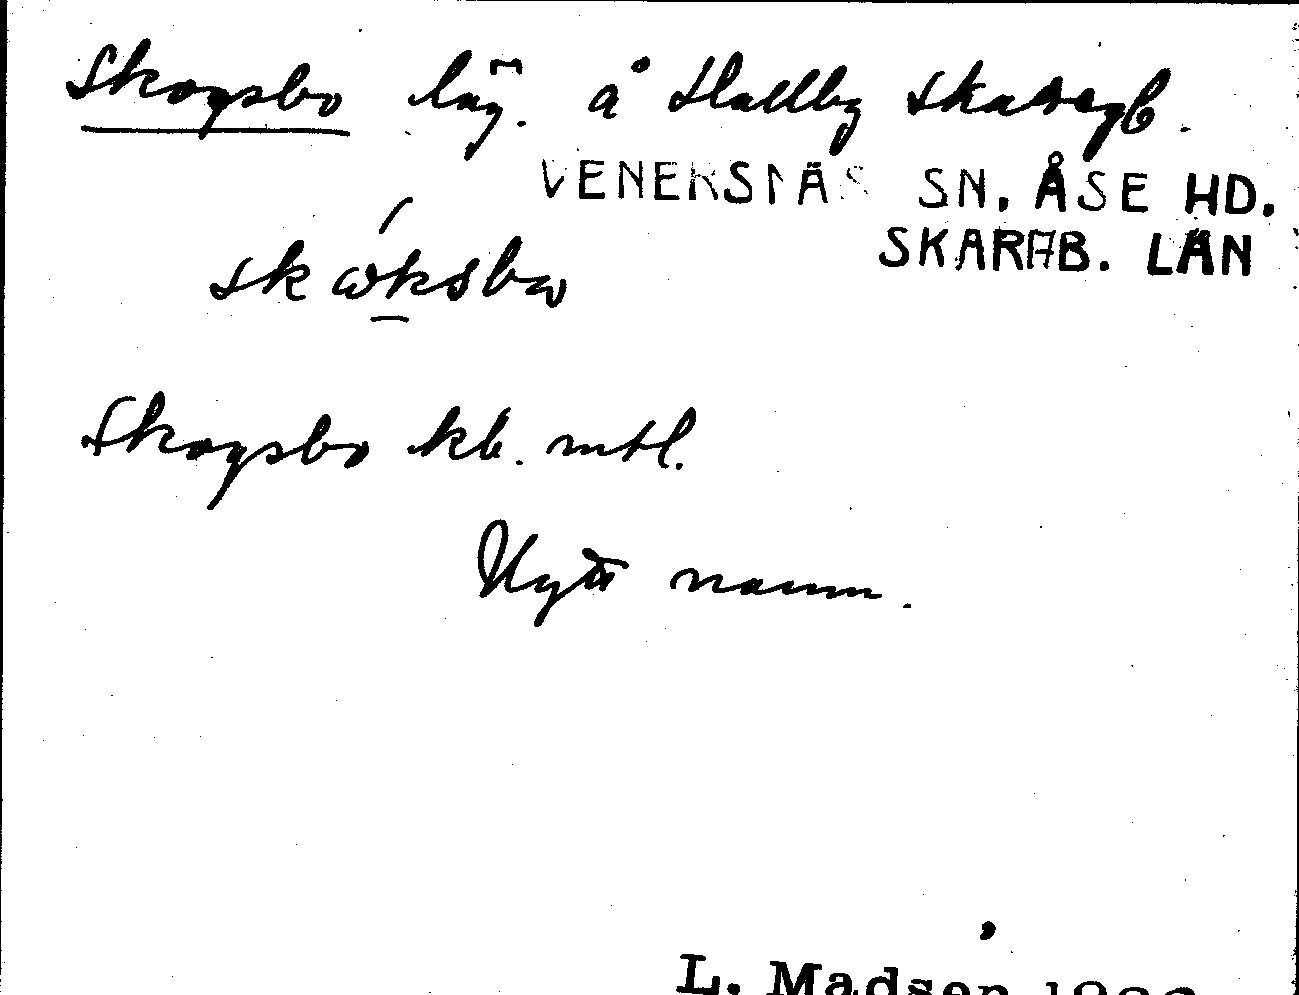 Skogsbo läg. å Hallby skattegb.
VENERSNÄS SN. ÅSE HD.
SKARAB. LÄN
skωksbω
Skogsbo kb. mtl.
Nytt namn.
L. Madsen